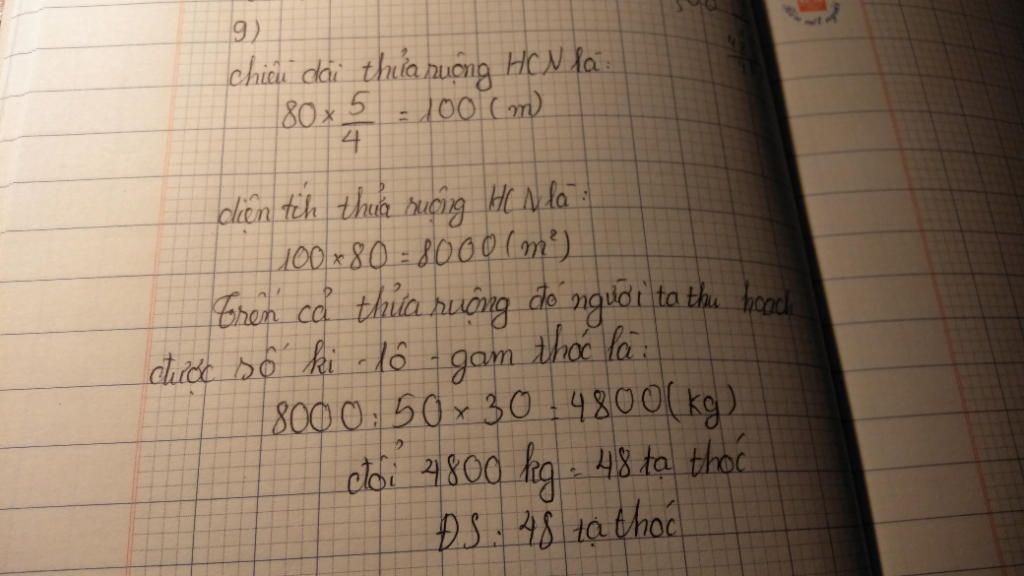 9)
chiều dài thửa ruộng HCN là:
80 × 5/4 = 100 (m)
diện tích thửa ruộng HCN là:
100 × 80 = 8000 (m²)
Trên cả thửa ruộng đó người ta thu hoạch
được số ki - lô - gam thóc là:
8000 : 50 × 30 = 4800 (kg)
đổi 4800 kg = 48 tạ thóc
ĐS : 48 tạ thóc